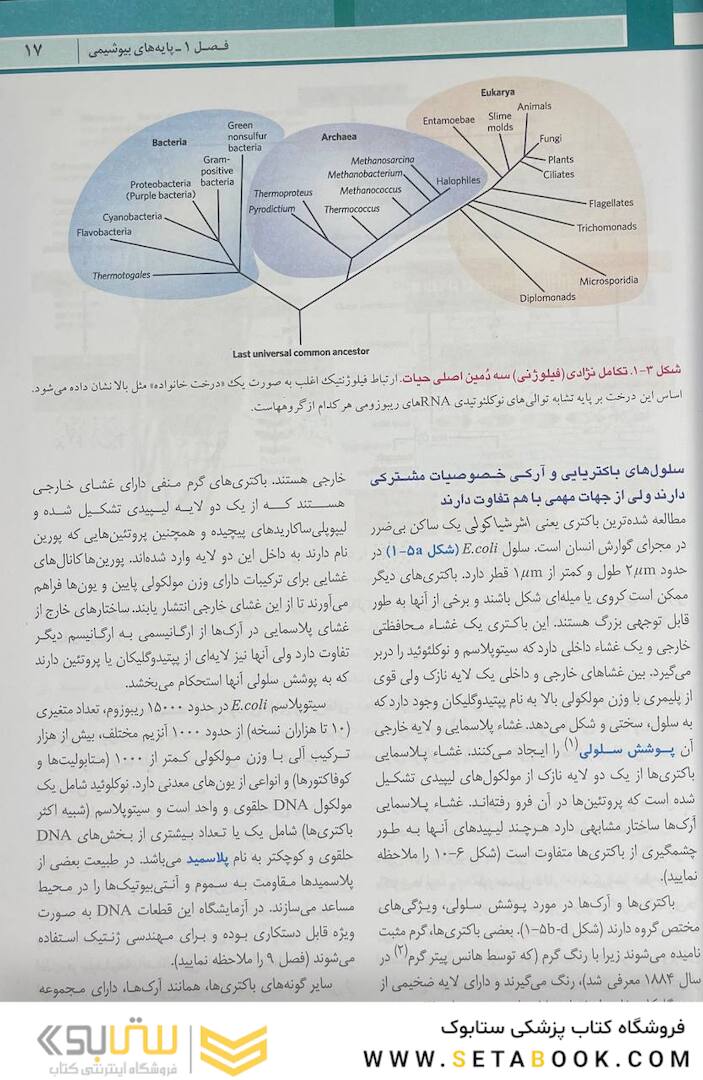 فصل ۱ ـ پایه‌های بیوشیمی
۱۷
Eukarya
Animals
Slime
molds
Entamoebae
Fungi
Plants
Ciliates
Flagellates
Trichomonads
Microsporidia
Diplomonads
Archaea
Methanosarcina
Methanobacterium
Halophiles
Methanococcus
Thermoproteus
Pyrodictium
Thermococcus
Bacteria
Green
nonsulfur
bacteria
Gram-
positive
bacteria
Proteobacteria
(Purple bacteria)
Cyanobacteria
Flavobacteria
Thermotogales
Last universal common ancestor
شکل ۳-۱. تکامل نژادی (فیلوژنی) سه دُمین اصلی حیات. ارتباط فیلوژنتیک اغلب به صورت یک «درخت خانواده» مثل بالا نشان داده می‌شود.
اساس این درخت بر پایه تشابه توالی‌های نوکلئوتیدی RNAهای ریبوزومی هر کدام از گروههاست.
سلول‌های باکتریایی و آرکی خصوصیات مشترکی
دارند ولی از جهات مهمی با هم تفاوت دارند
مطالعه شده‌ترین باکتری یعنی اشرشیاکولی یک ساکن بی‌ضرر
در مجرای گوارش انسان است. سلول E.coli (شکل ۵a-۱) در
حدود ۲μm طول و کمتر از ۱μm قطر دارد. باکتری‌های دیگر
ممکن است کروی یا میله‌ای شکل باشند و برخی از آنها به طور
قابل توجهی بزرگ هستند. این باکتری یک غشاء محافظتی
خارجی و یک غشاء داخلی دارد که سیتوپلاسم و نوکلئوئید را دربر
می‌گیرد. بین غشاهای خارجی و داخلی یک لایه نازک ولی قوی
از پلیمری با وزن مولکولی بالا به نام پپتیدوگلیکان وجود دارد که
به سلول، سختی و شکل می‌دهد. غشاء پلاسمایی و لایه خارجی
آن پوشش سلولی(۱) را ایجاد می‌کنند. غشاء پلاسمایی
باکتری‌ها از یک دو لایه نازک از مولکول‌های لیپیدی تشکیل
شده است که پروتئین‌ها در آن فرو رفته‌اند. غشاء پلاسمایی
آرک‌ها ساختار مشابهی دارد هرچند لیپیدهای آنها به طور
چشمگیری از باکتری‌ها متفاوت است (شکل ۶-۱۰ را ملاحظه
نمایید).
باکتری‌ها و آرک‌ها در مورد پوشش سلولی، ویژگی‌های
مختص گروه دارند (شکل ۵b-d-۱). بعضی باکتری‌ها، گرم مثبت
نامیده می‌شوند زیرا با رنگ گرم (که توسط هانس پیتر گرم(۲) در
سال ۱۸۸۴ معرفی شد)، رنگ می‌گیرند و دارای لایه ضخیمی از
خارجی هستند. باکتری‌های گرم منفی دارای غشای خارجی
هستند که از یک دو لایه لیپیدی تشکیل شده و
لیپوپلی‌ساکاریدهای پیچیده و همچنین پروتئین‌هایی که پورین
نام دارند به داخل این دو لایه وارد شده‌اند. پورین‌ها کانال‌های
غشایی برای ترکیبات دارای وزن مولکولی پایین و یون‌ها فراهم
می‌آورند تا از این غشای خارجی انتشار یابند. ساختارهای خارج از
غشای پلاسمایی در آرک‌ها از ارگانیسمی به ارگانیسم دیگر
تفاوت دارد ولی آنها نیز لایه‌ای از پپتیدوگلیکان یا پروتئین دارند
که به پوشش سلولی آنها استحکام می‌بخشد.
سیتوپلاسم E.coli در حدود ۱۵۰۰۰ ریبوزوم، تعداد متغیری
(۱۰ تا هزاران نسخه) از حدود ۱۰۰۰ آنزیم مختلف، بیش از هزار
ترکیب آلی با وزن مولکولی کمتر از ۱۰۰۰ (متابولیت‌ها و
کوفاکتورها) و انواعی از یون‌های معدنی دارد. نوکلوئید شامل یک
مولکول DNA حلقوی و واحد است و سیتوپلاسم (شبیه اکثر
باکتری‌ها) شامل یک یا تعداد بیشتری از بخش‌های DNA
حلقوی و کوچکتر به نام پلاسمید می‌باشد. در طبیعت بعضی از
پلاسمیدها مقاومت به سموم و آنتی‌بیوتیک‌ها را در محیط
مساعد می‌سازند. در آزمایشگاه این قطعات DNA به صورت
ویژه قابل دستکاری بوده و برای مهندسی ژنتیک استفاده
می‌شوند (فصل ۹ را ملاحظه نمایید).
سایر گونه‌های باکتری‌ها، همانند آرک‌ها، دارای مجموعه
فروشگاه کتاب پزشکی ستابوک
WWW.SETABOOK.COM
ستابوک
فروشگاه اینترنتی کتاب